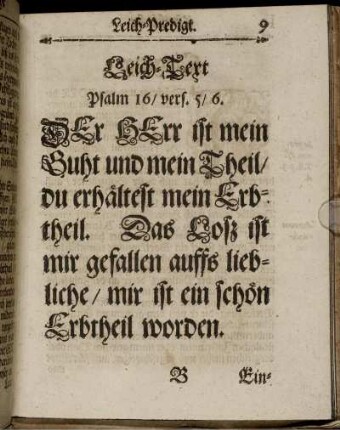 Leich-Predigt. 9
Leich-Text
Psalm 16/ vers. 5/ 6.
DEr HErr ist mein
Guht und mein Theil/
du erhältest mein Erb-
theil. Das Losz ist
mir gefallen auffs lieb-
liche/ mir ist ein schön
Erbtheil worden.
B Ein-